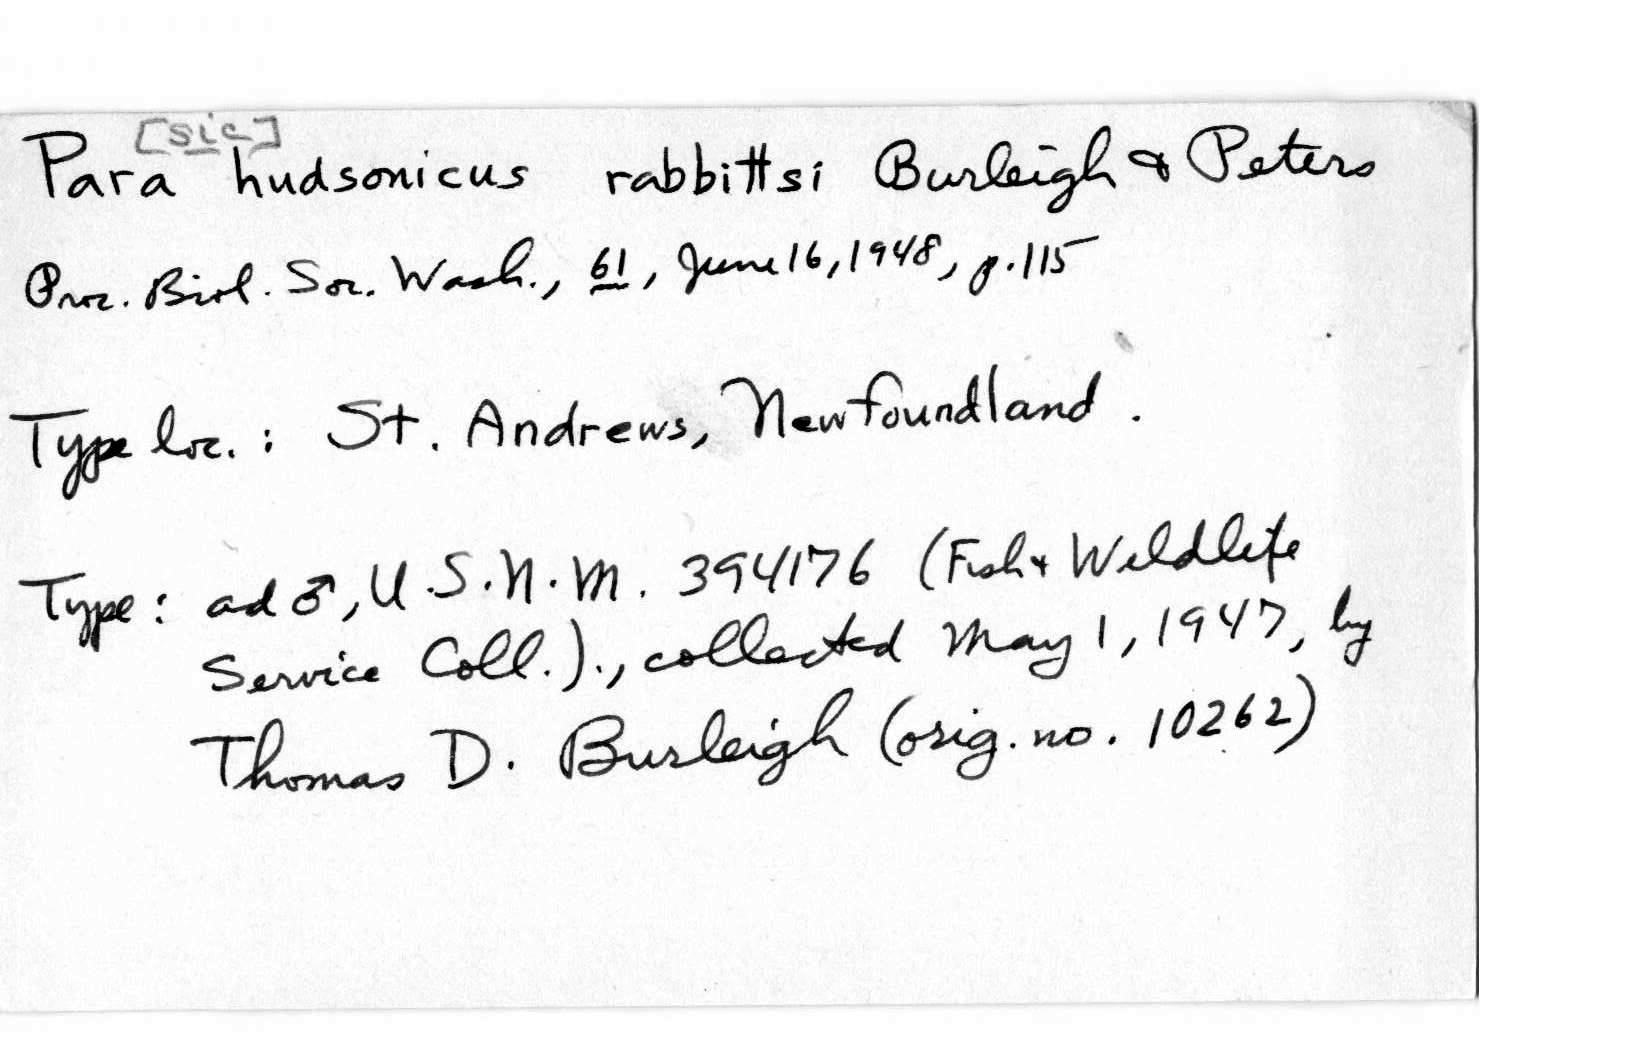 Para [sic] hudsonicus rabbittsi Burleigh & Peters
Proc. Biol. Soc. Wash., 61, June 16, 1948, p. 115
Type loc. : St. Andrews, Newfoundland.
Type : ad ♂, U.S.N.M. 394176 (Fish & Wildlife
Service Coll.)., collected May 1, 1947, by
Thomas D. Burleigh (orig. no. 10262)